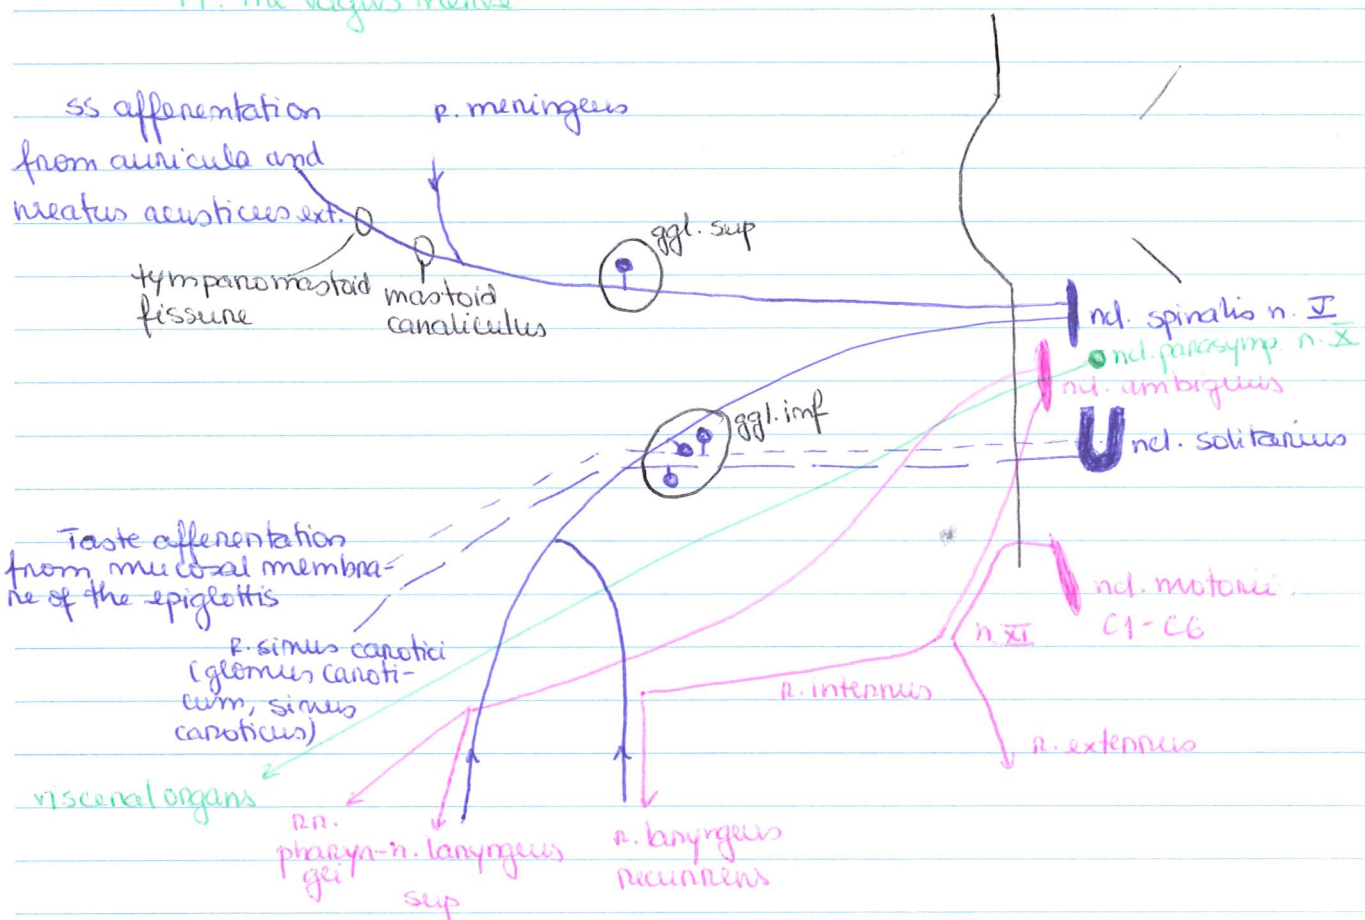 The vagus nerve
ss afferentation
from auricula and
meatus acusticus ext.
r. meningeus
tympanomastoid
fissure
mastoid
canaliculus
ggl. sup
ncl. spinalis n. V
ncl. parasymp. n. X
ncl. ambiguus
ggl. inf
ncl. solitarius
Taste afferentation
from mucosal membra-
ne of the epiglottis
R. sinus carotici
(glomus caroti-
cum, sinus
caroticus)
ncl. motorii
C1-C6
n. XI
r. internus
r. externus
visceral organs
rr.
pharyn-
gei
n. laryngeus
sup
n. laryngeus
recurrens